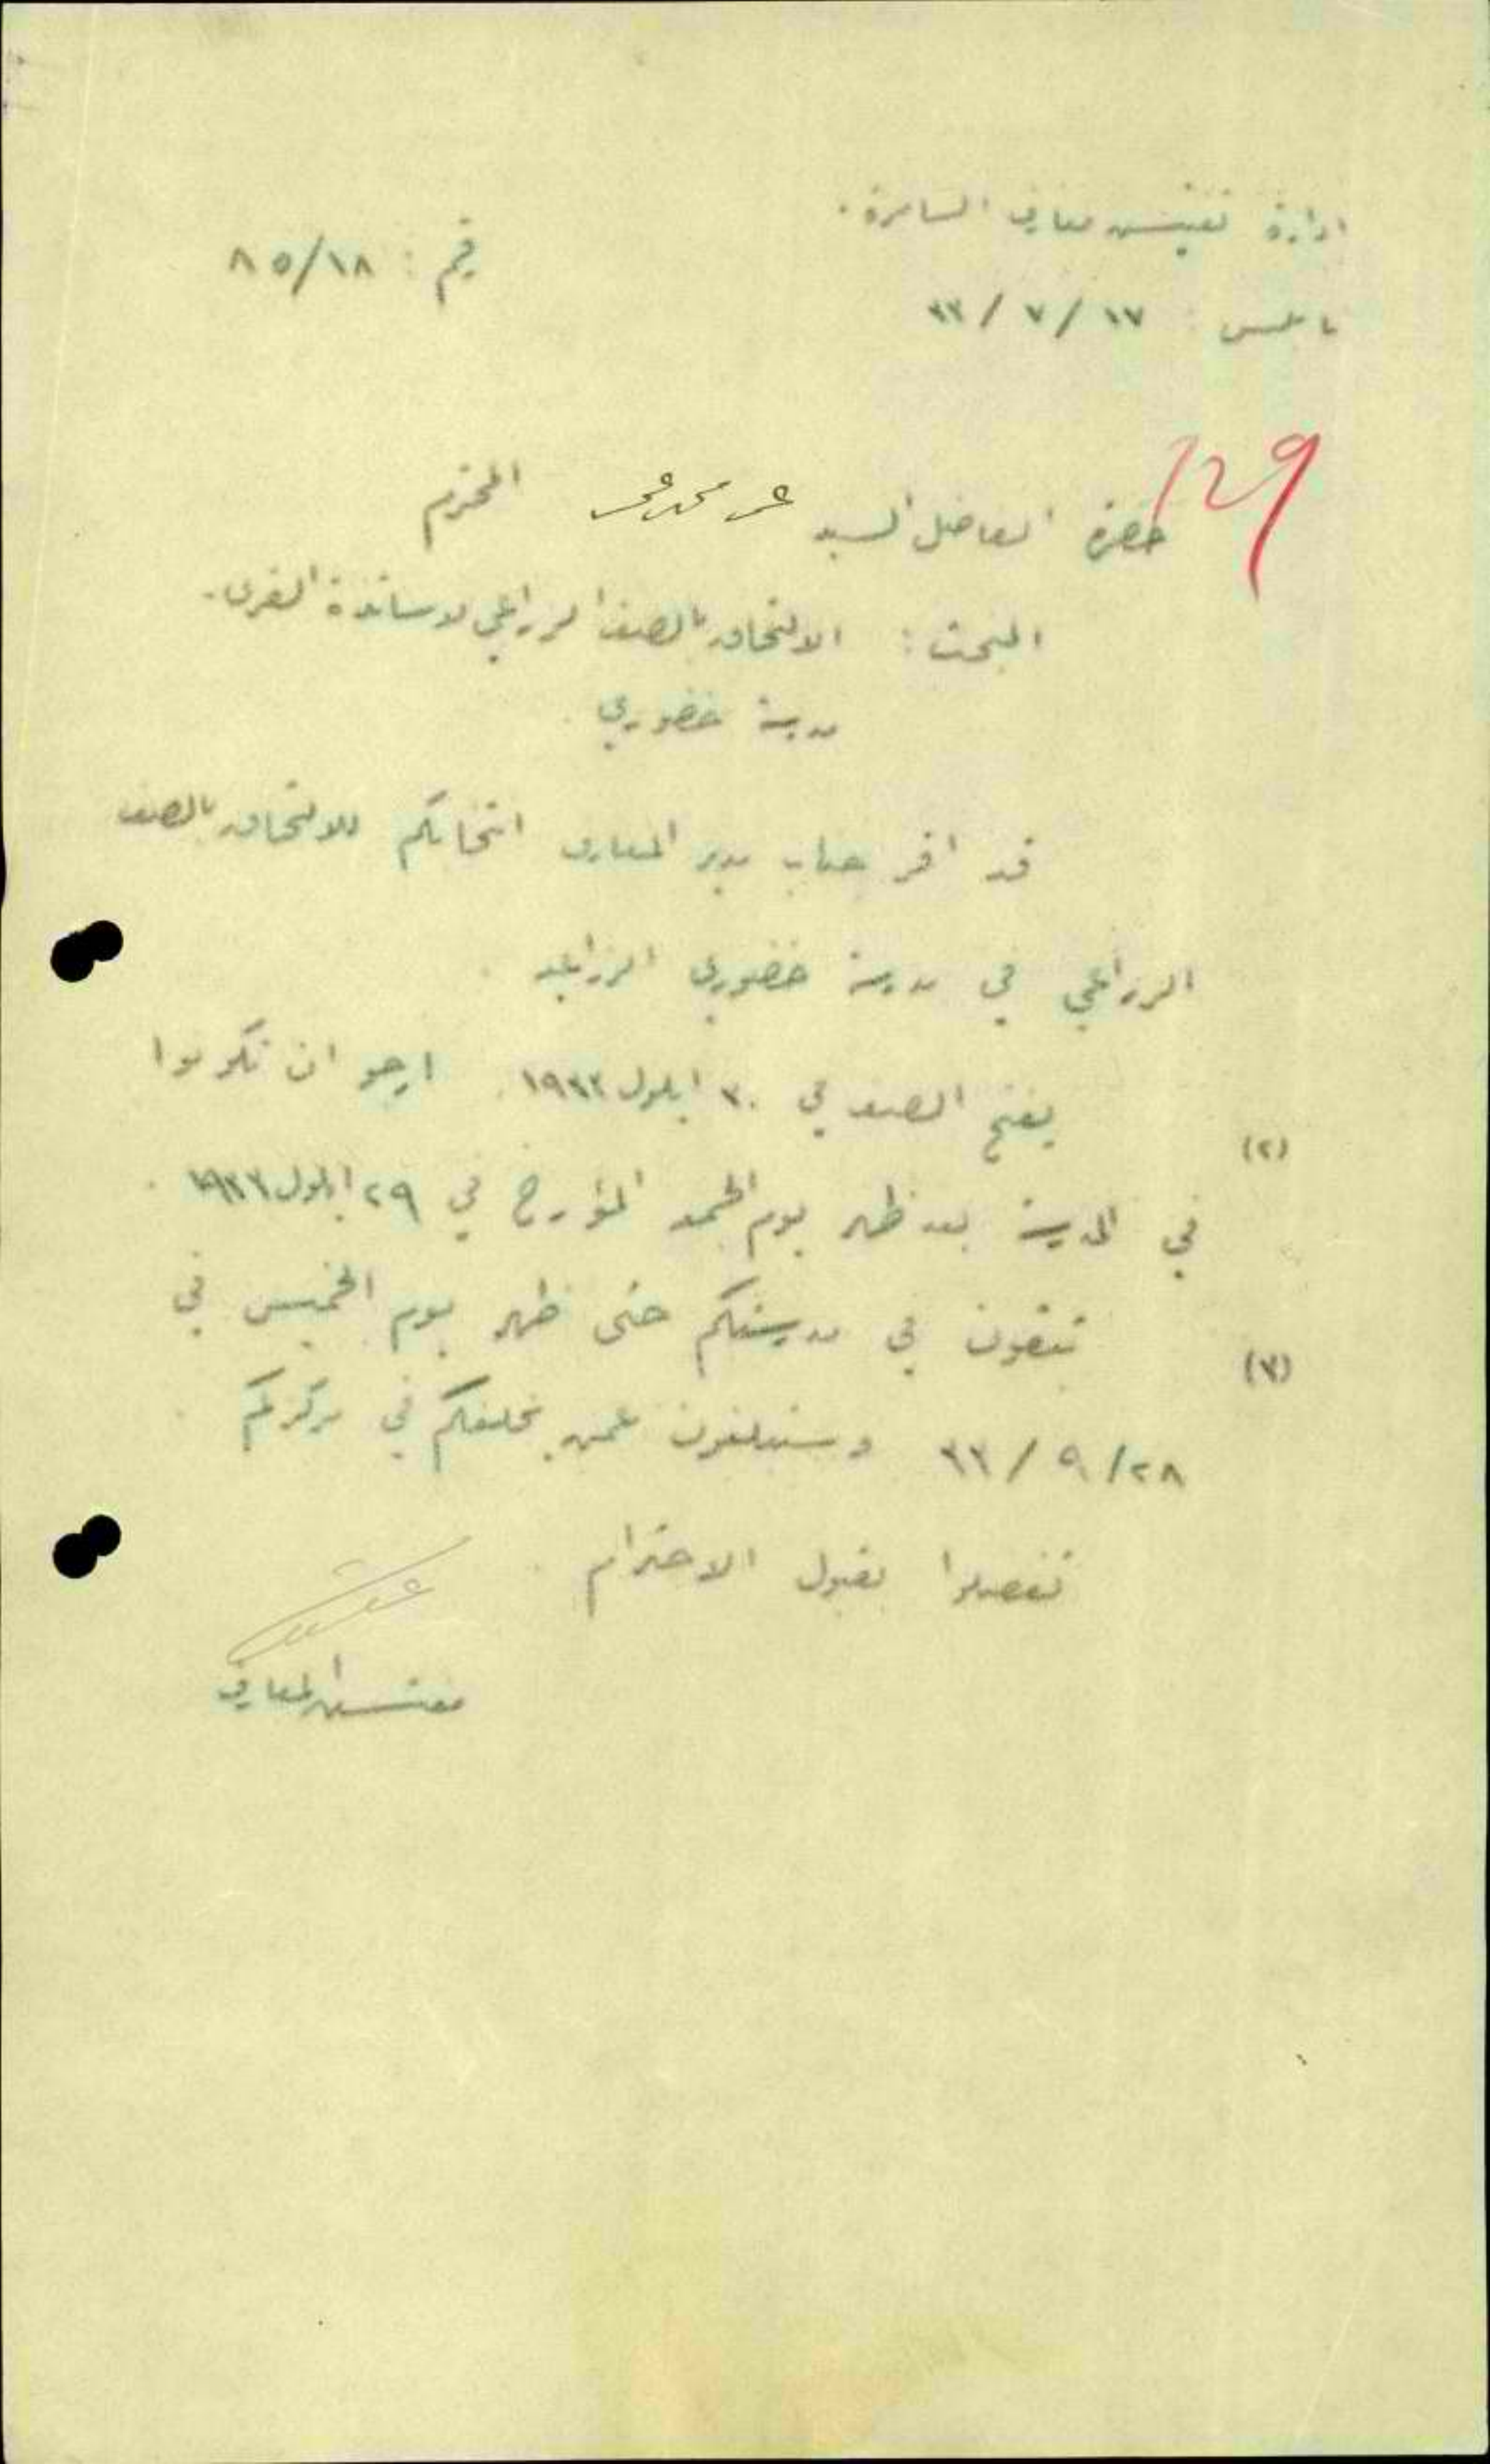 ادارة تفتيش معارف السامرة .
رقم : ٨٥/١٨
نابلس : ١٧ / ٧ / ٣٣
129
حضرة الفاضل السيد عمر محمد عمر المحترم
المبحث : الالتحاق بالصف الزراعي لاساتذة القرى .
مدرسة خضوري .
قد اقر جناب مدير المعارف انتخابكم للالتحاق بالصف
الزراعي في مدرسة خضوري الزراعية .
(٢) يفتح الصف في ٣٠ ايلول ١٩٣٣ . ارجو ان تكونوا
في المدرسة بعد ظهر يوم الجمعة المؤرخ في ٢٩ ايلول ١٩٣٣ .
(٣) تبقون في مدرستكم حتى ظهر يوم الخميس في
٢٨/ ٩ / ٣٣ وستبلغون عمن يخلفكم في مركزكم .
تفضلوا بقبول الاحترام .
مفتش المعارف